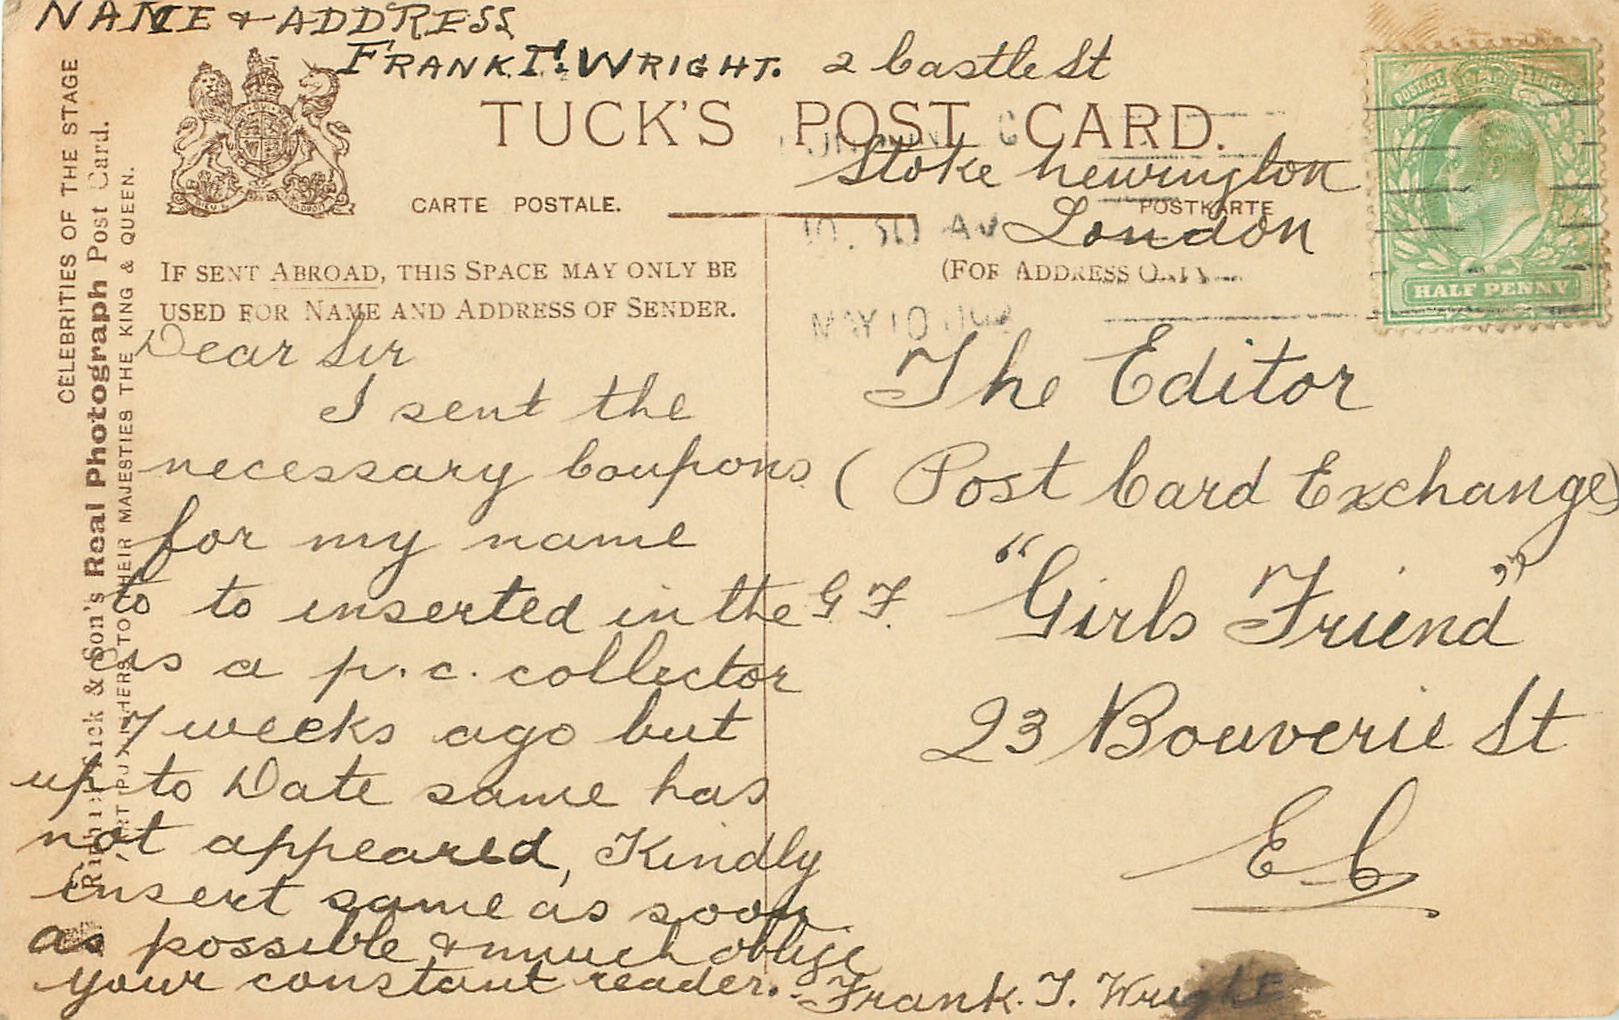 NAME & ADDRESS
FRANK. T. WRIGHT. 2 Castle St
Stoke Newington
London
TUCK'S POST CARD.
CARTE POSTALE.
POSTKARTE
(FOR ADDRESS ONLY)
IF SENT ABROAD, THIS SPACE MAY ONLY BE
USED FOR NAME AND ADDRESS OF SENDER.
CELEBRITIES OF THE STAGE
Tuck & Son's Real Photograph Post Card.
ART PUBLISHERS TO THEIR MAJESTIES THE KING & QUEEN.
POSTAGE
HALF PENNY
10.
MAY 10
Dear Sir
I sent the
necessary Coupons
for my name
to to inserted in the G F.
as a p.c. collector
7 weeks ago but
up to Date same has
not appeared, Kindly
insert same as soon
as possible & much oblige
your constant reader.
Frank. T. Wright
The Editor
(Post Card Exchange)
"Girls Friend"
23 Bouverie St
E C